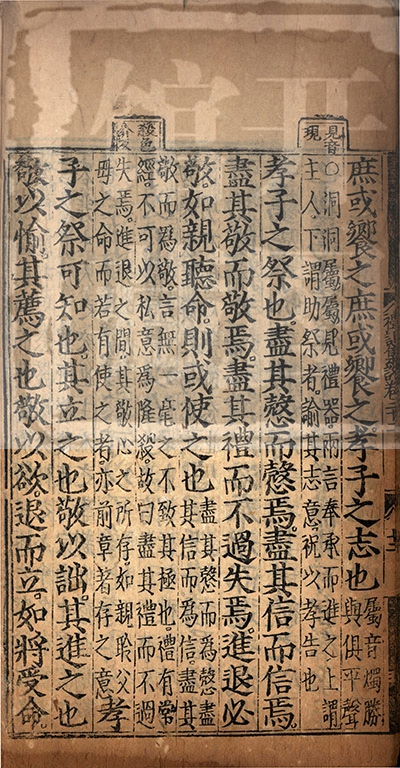 見音現
愨色
庶或饗之庶或饗之孝子之志也 屬音燭勝與俱平聲
○洞洞屬屬見禮器兩言奉承而進之上謂
主人下謂助祭者諭其志意祝以孝告也
孝子之祭也盡其愨而愨焉盡其信而信焉
盡其敬而敬焉盡其禮而不過失焉進退必
敬如親聽命則或使之也 盡其愨而為愨盡其信而為信盡其
敬而為敬言無一毫之不致其極也禮有常
經不可以私意為隆殺故曰盡其禮而不過
失焉進退之間其敬心之所存如親聆父
母之命而若有使之者亦前章著存之意 孝
子之祭可知也其立之也敬以詘其進之也
敬以愉其薦之也敬以欲退而立如將受命